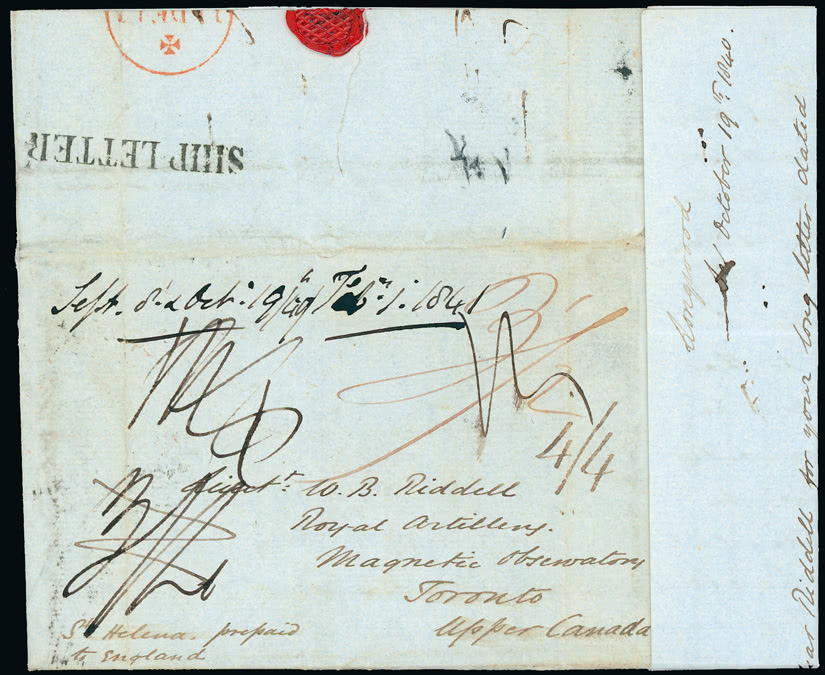 SHIP LETTER
Sept. 8. & Oct. 19/40 Feb. 1. 1841
4/4
Lieutt. W. B. Riddell
Royal Artillery.
Magnetic Observatory
Toronto
Upper Canada
St Helena. prepaid
to England
Longwood
October 19th 1840.
ear Riddell for your long letter dated